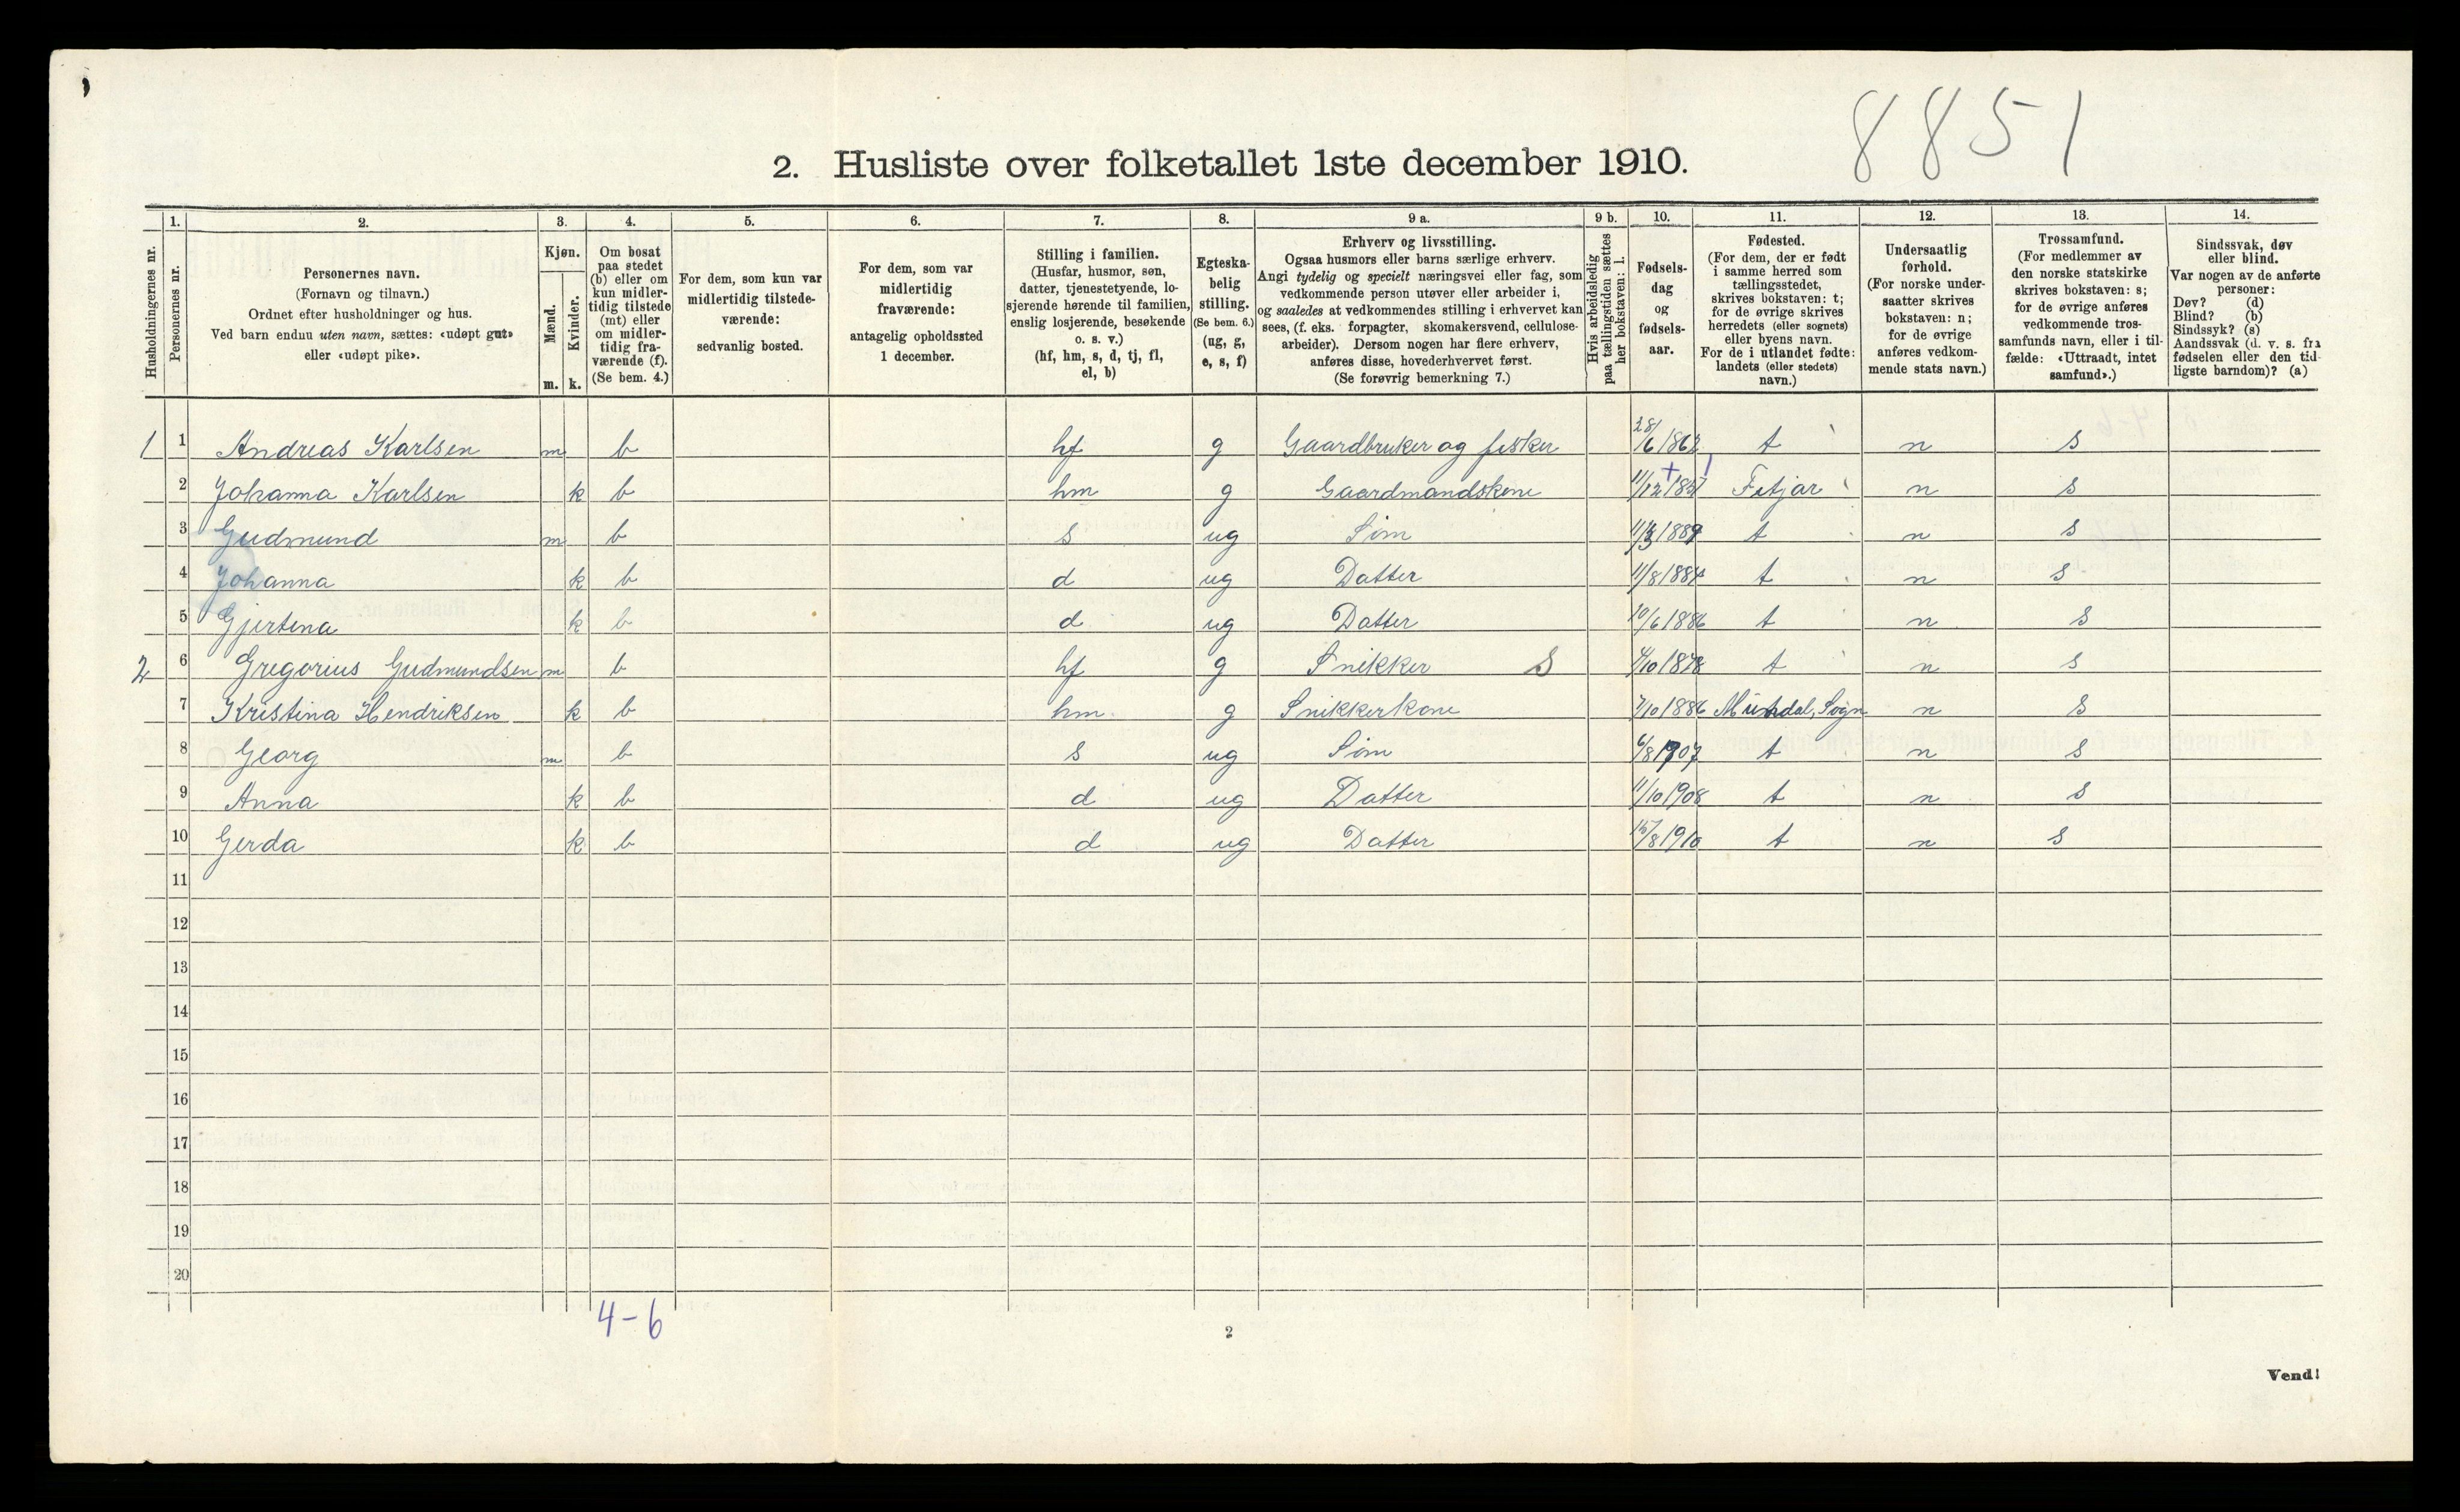 8851
2. Husliste over folketallet 1ste december 1910.
1. 2. 3. 4. 5. 6. 7. 8. 9 a. 9 b. 10. 11. 12. 13. 14.
Husholdningernes nr.
Personernes nr.
Personernes navn.
(Fornavn og tilnavn.)
Ordnet efter husholdninger og hus.
Ved barn endnu uten navn, sættes: «udøpt gut»
eller «udøpt pike».
Kjøn.
Mænd.
m.
Kvinder.
k.
Om bosat
paa stedet
(b) eller om
kun midler-
tidig tilstede
(mt) eller
om midler-
tidig fra-
værende (f).
(Se bem. 4.)
For dem, som kun var
midlertidig tilstede-
værende:
sedvanlig bosted.
For dem, som var
midlertidig
fraværende:
antagelig opholdssted
1 december.
Stilling i familien.
(Husfar, husmor, søn,
datter, tjenestetyende, lo-
sjerende hørende til familien,
enslig losjerende, besøkende
o. s. v.)
(hf, hm, s, d, tj, fl,
el, b)
Egteska-
belig
stilling.
(Se bem. 6.)
(ug, g,
e, s, f)
Erhverv og livsstilling.
Ogsaa husmors eller barns særlige erhverv.
Angi tydelig og specielt næringsvei eller fag, som
vedkommende person utøver eller arbeider i,
og saaledes at vedkommendes stilling i erhvervet kan
sees, (f. eks. forpagter, skomakersvend, cellulose-
arbeider). Dersom nogen har flere erhverv,
anføres disse, hovederhvervet først.
(Se forøvrig bemerkning 7.)
Hvis arbeidsledig
paa tællingstiden sættes
her bokstaven: l.
Fødsels-
dag
og
fødsels-
aar.
Fødested.
(For dem, der er født
i samme herred som
tællingsstedet,
skrives bokstaven: t;
for de øvrige skrives
herredets (eller sognets)
eller byens navn.
For de i utlandet fødte:
landets (eller stedets)
navn.)
Undersaatlig
forhold.
(For norske under-
saatter skrives
bokstaven: n;
for de øvrige
anføres vedkom-
mende stats navn.)
Trossamfund.
(For medlemmer av
den norske statskirke
skrives bokstaven: s;
for de øvrige anføres
vedkommende tros-
samfunds navn, eller i til-
fælde: «Uttraadt, intet
samfund».)
Sindssvak, døv
eller blind.
Var nogen av de anførte
personer:
Døv? (d)
Blind? (b)
Sindssyk? (s)
Aandssvak (d. v. s. fra
fødselen eller den tid-
ligste barndom)? (a)
1 1 Andreas Karlsen m b hf g Gaardbruker og fisker 28/6 1862 t n s
2 Johanna Karlsen k b hm g Gaardmandskone 11/12 Fitjar n s
3 Gudmund m b s ug Søn t n s
4 Johanna k b d ug Datter 11/8 1884 t n s
5 Gjertina k b d ug Datter 10/6 1886 t n s
2 6 Gregorius Gudmundsen m b hf g Snikker S 4/10 1878 t n s
7 Kristina Hendriksen k b hm g Snikkerkone 7/10 1886 Mundal, Sogn n s
8 Georg m b s ug Søn 6/8 1907 t n s
9 Anna k b d ug Datter 11/10 1908 t n s
10 Gerda k b d ug Datter 15/8 1910 t n s
11
12
13
14
15
16
17
18
19
20
4-6
2
Vend!